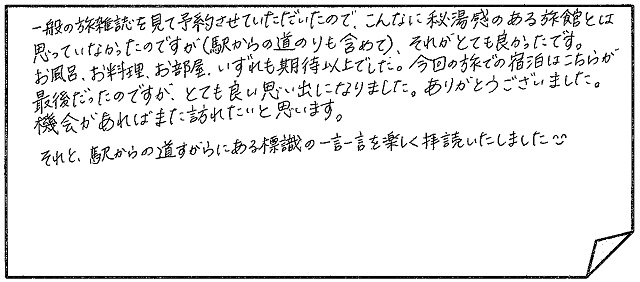 一般の旅雑誌を見て予約させていただいたので、こんなに秘湯感のある旅館とは
思っていなかったのですが(駅からの道のりも含めて)、それがとても良かったです。
お風呂、お料理、お部屋、いずれも期待以上でした。今回の旅での宿泊はこちらが
最後だったのですが、とても良い思い出になりました。ありがとうございました。
機会があればまた訪れたいと思います。
それと、駅からの道すがらにある標識の一言一言を楽しく拝読いたしました